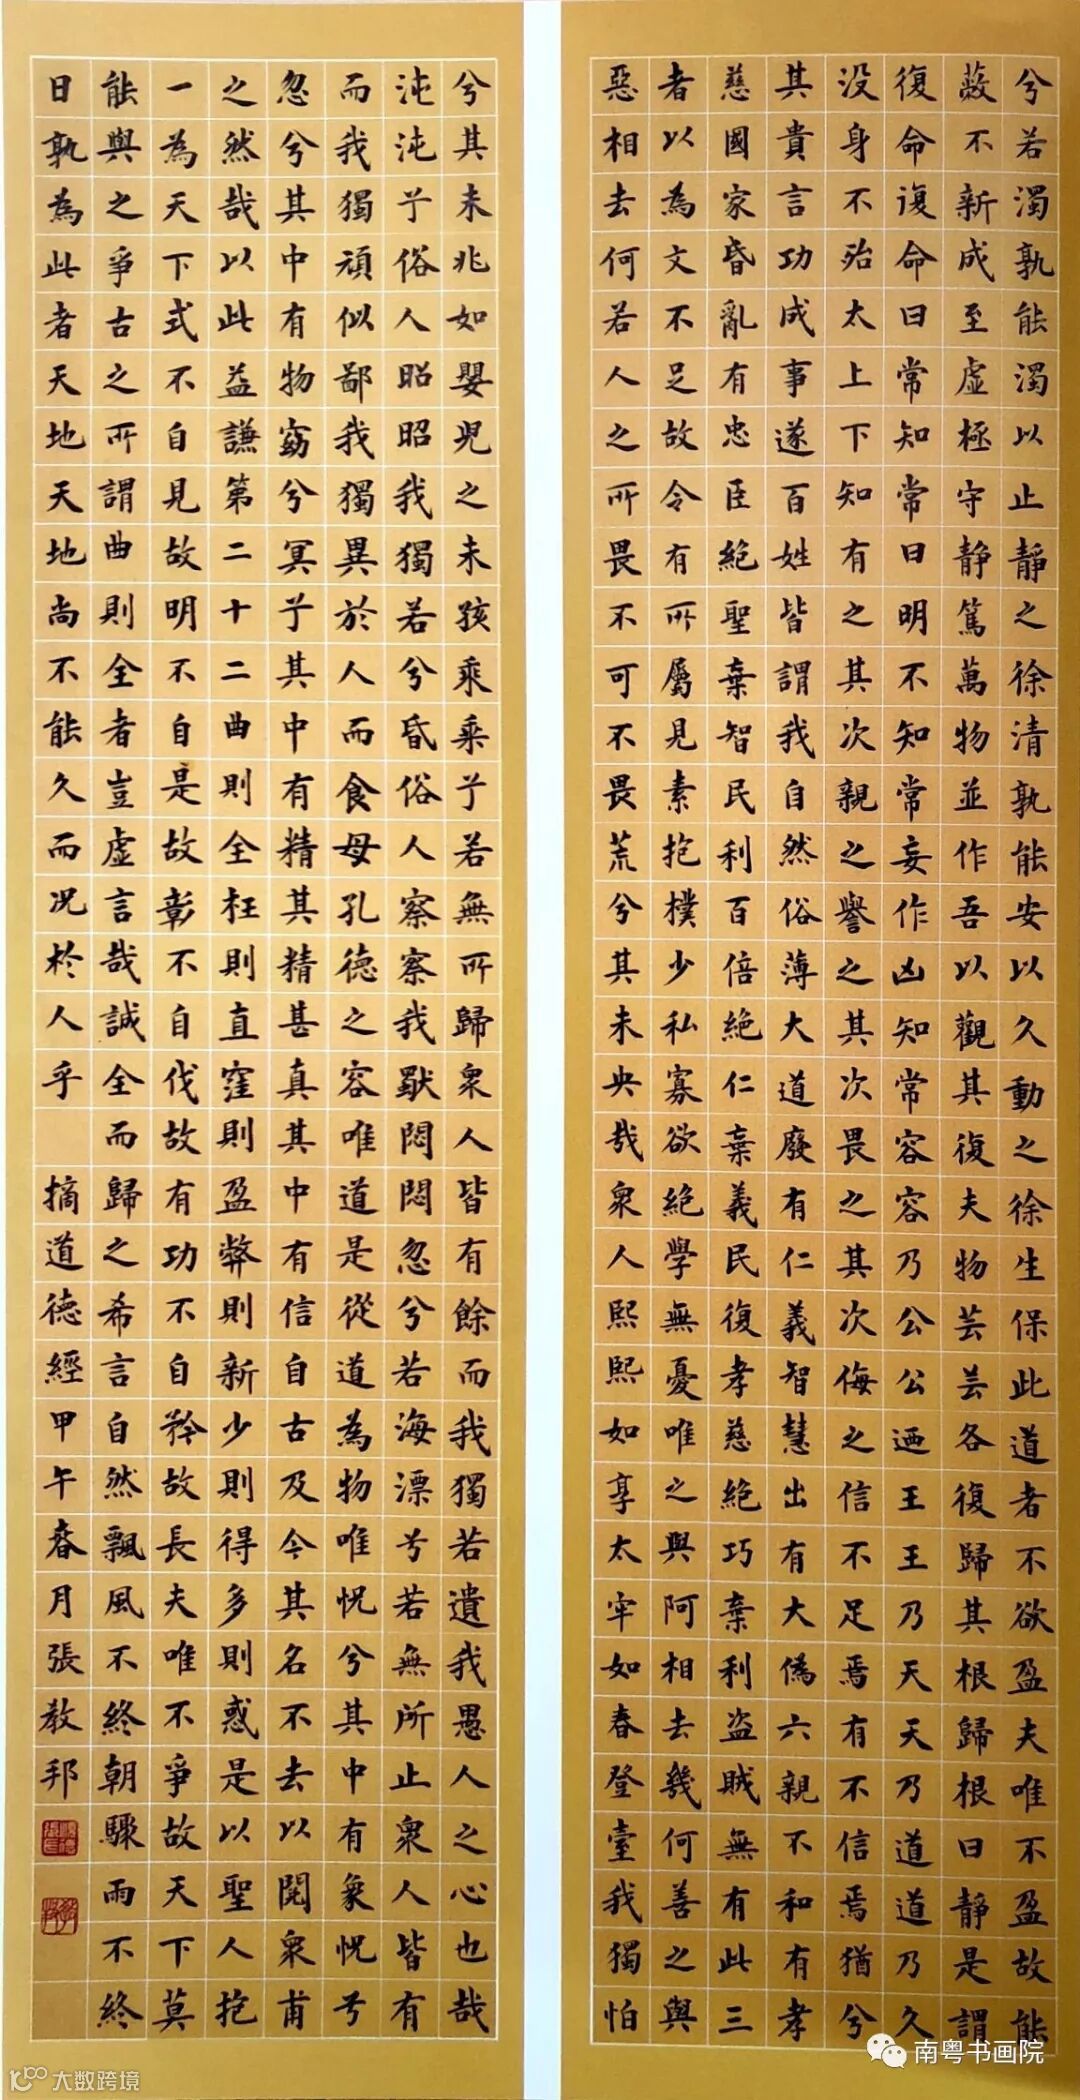 兮若濁孰能濁以止靜之徐清孰能安以久動之徐生保此道者不欲盈夫唯不盈故能
蔽不新成至虛極守静篤萬物並作吾以觀其復夫物芸芸各復歸其根歸根曰靜是謂
復命復命曰常知常曰明不知常妄作凶知常容容乃公公迺王王乃天天乃道道乃久
没身不殆太上下知有之其次親之譽之其次畏之其次侮之信不足焉有不信焉猶兮
其貴言功成事遂百姓皆謂我自然俗薄大道廢有仁義智慧出有大偽六親不和有孝
慈國家昏亂有忠臣絕聖棄智民利百倍絕仁棄義民復孝慈絕巧棄利盜賊無有此三
者以為文不足故令有所屬見素抱樸少私寡欲絕學無憂唯之與阿相去幾何善之與
惡相去何若人之所畏不可不畏荒兮其未央哉衆人熙熙如享太牢如春登臺我獨怕
兮其未兆如嬰兒之未孩乘乘兮若無所歸衆人皆有餘而我獨若遺我愚人之心也哉
沌沌兮俗人昭昭我獨若兮昏俗人察察我獸悶悶忽兮若海漂兮若無所止衆人皆有
而我獨頑似鄙我獨異於人而食母孔德之容唯道是從道為物唯怳兮其中有象怳兮
忽兮其中有物窈兮冥兮其中有精其精甚真其中有信自古及今其名不去以閱衆甫
之然哉以此益謙第二十二曲則全枉則直窪則盈弊則新少則得多則惑是以聖人抱
一為天下式不自見故明不自是故彰不自伐故有功不自矜故長夫唯不爭故天下莫
能與之爭古之所謂曲則全者豈虛言哉誠全而歸之希言自然飄風不終朝驟雨不終
日孰為此者天地天地尚不能久而況於人乎 摘道德經甲午春月張教邦
南粤书画院
大数跨境